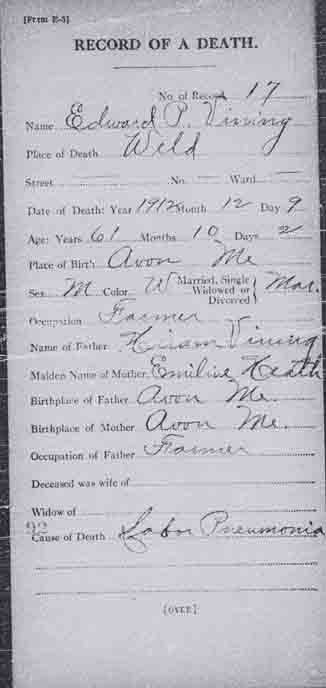 [Form E-5]
RECORD OF A DEATH.
No. of Record 17
Name Edward P. Vining
Place of Death Weld
Street No. Ward
Date of Death: Year 1912 Month 12 Day 9
Age: Years 61 Months 10 Days 2
Place of Birth Avon Me
Sex M Color W Married, Single Widowed or Divorced } Mar.
Occupation Farmer
Name of Father Hiram Vining
Maiden Name of Mother Emiline Heath
Birthplace of Father Avon Me.
Birthplace of Mother Avon Me.
Occupation of Father Farmer
Deceased was wife of
Widow of
92
Cause of Death Labor Pneumonia
[OVER]